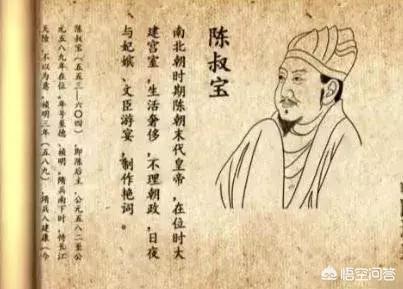 陈叔宝
南北朝时期陈朝末代皇帝，在位时大
建宫室，生活奢侈，不理朝政，日夜
与妃嫔、文臣游宴，制作艳词。
陈叔宝（五五三—六〇四） 即陈后主，公元五八二至公
元五八九年在位，年号至德、祯明。隋兵南下时，恃长江
天险，不以为意，祯明三年（五八九），隋兵入建康（今
悟空问答